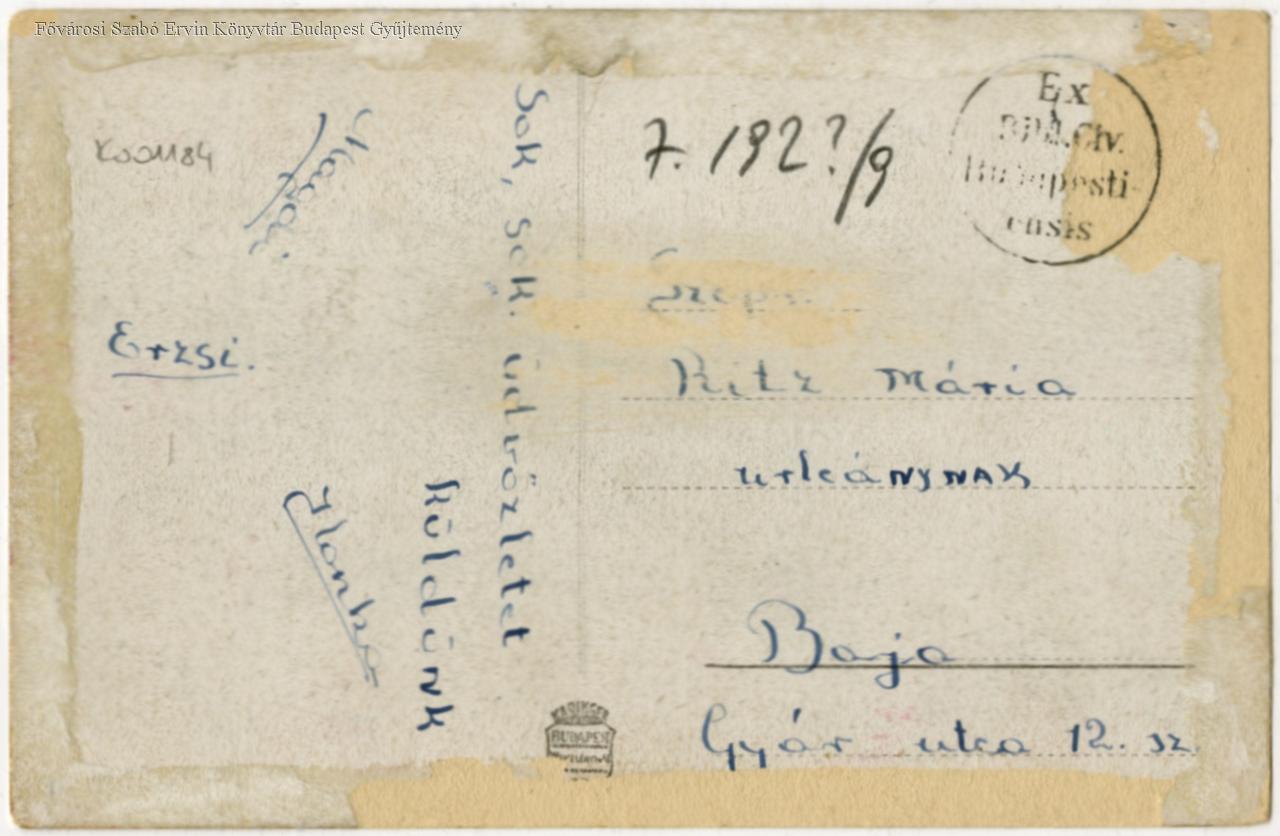 Fővárosi Szabó Ervin Könyvtár Budapest Gyűjtemény
K001184
Sok, sok. üdvözletet
küldünk
Magdi
Erzsi.
Ilonka
7. 192?/9
Ex
Bibl.Civ.
Budapesti-
ensis
Ritz Mária
urleánynak
Baja
Gyár utca 12. sz.
BUDAPEST